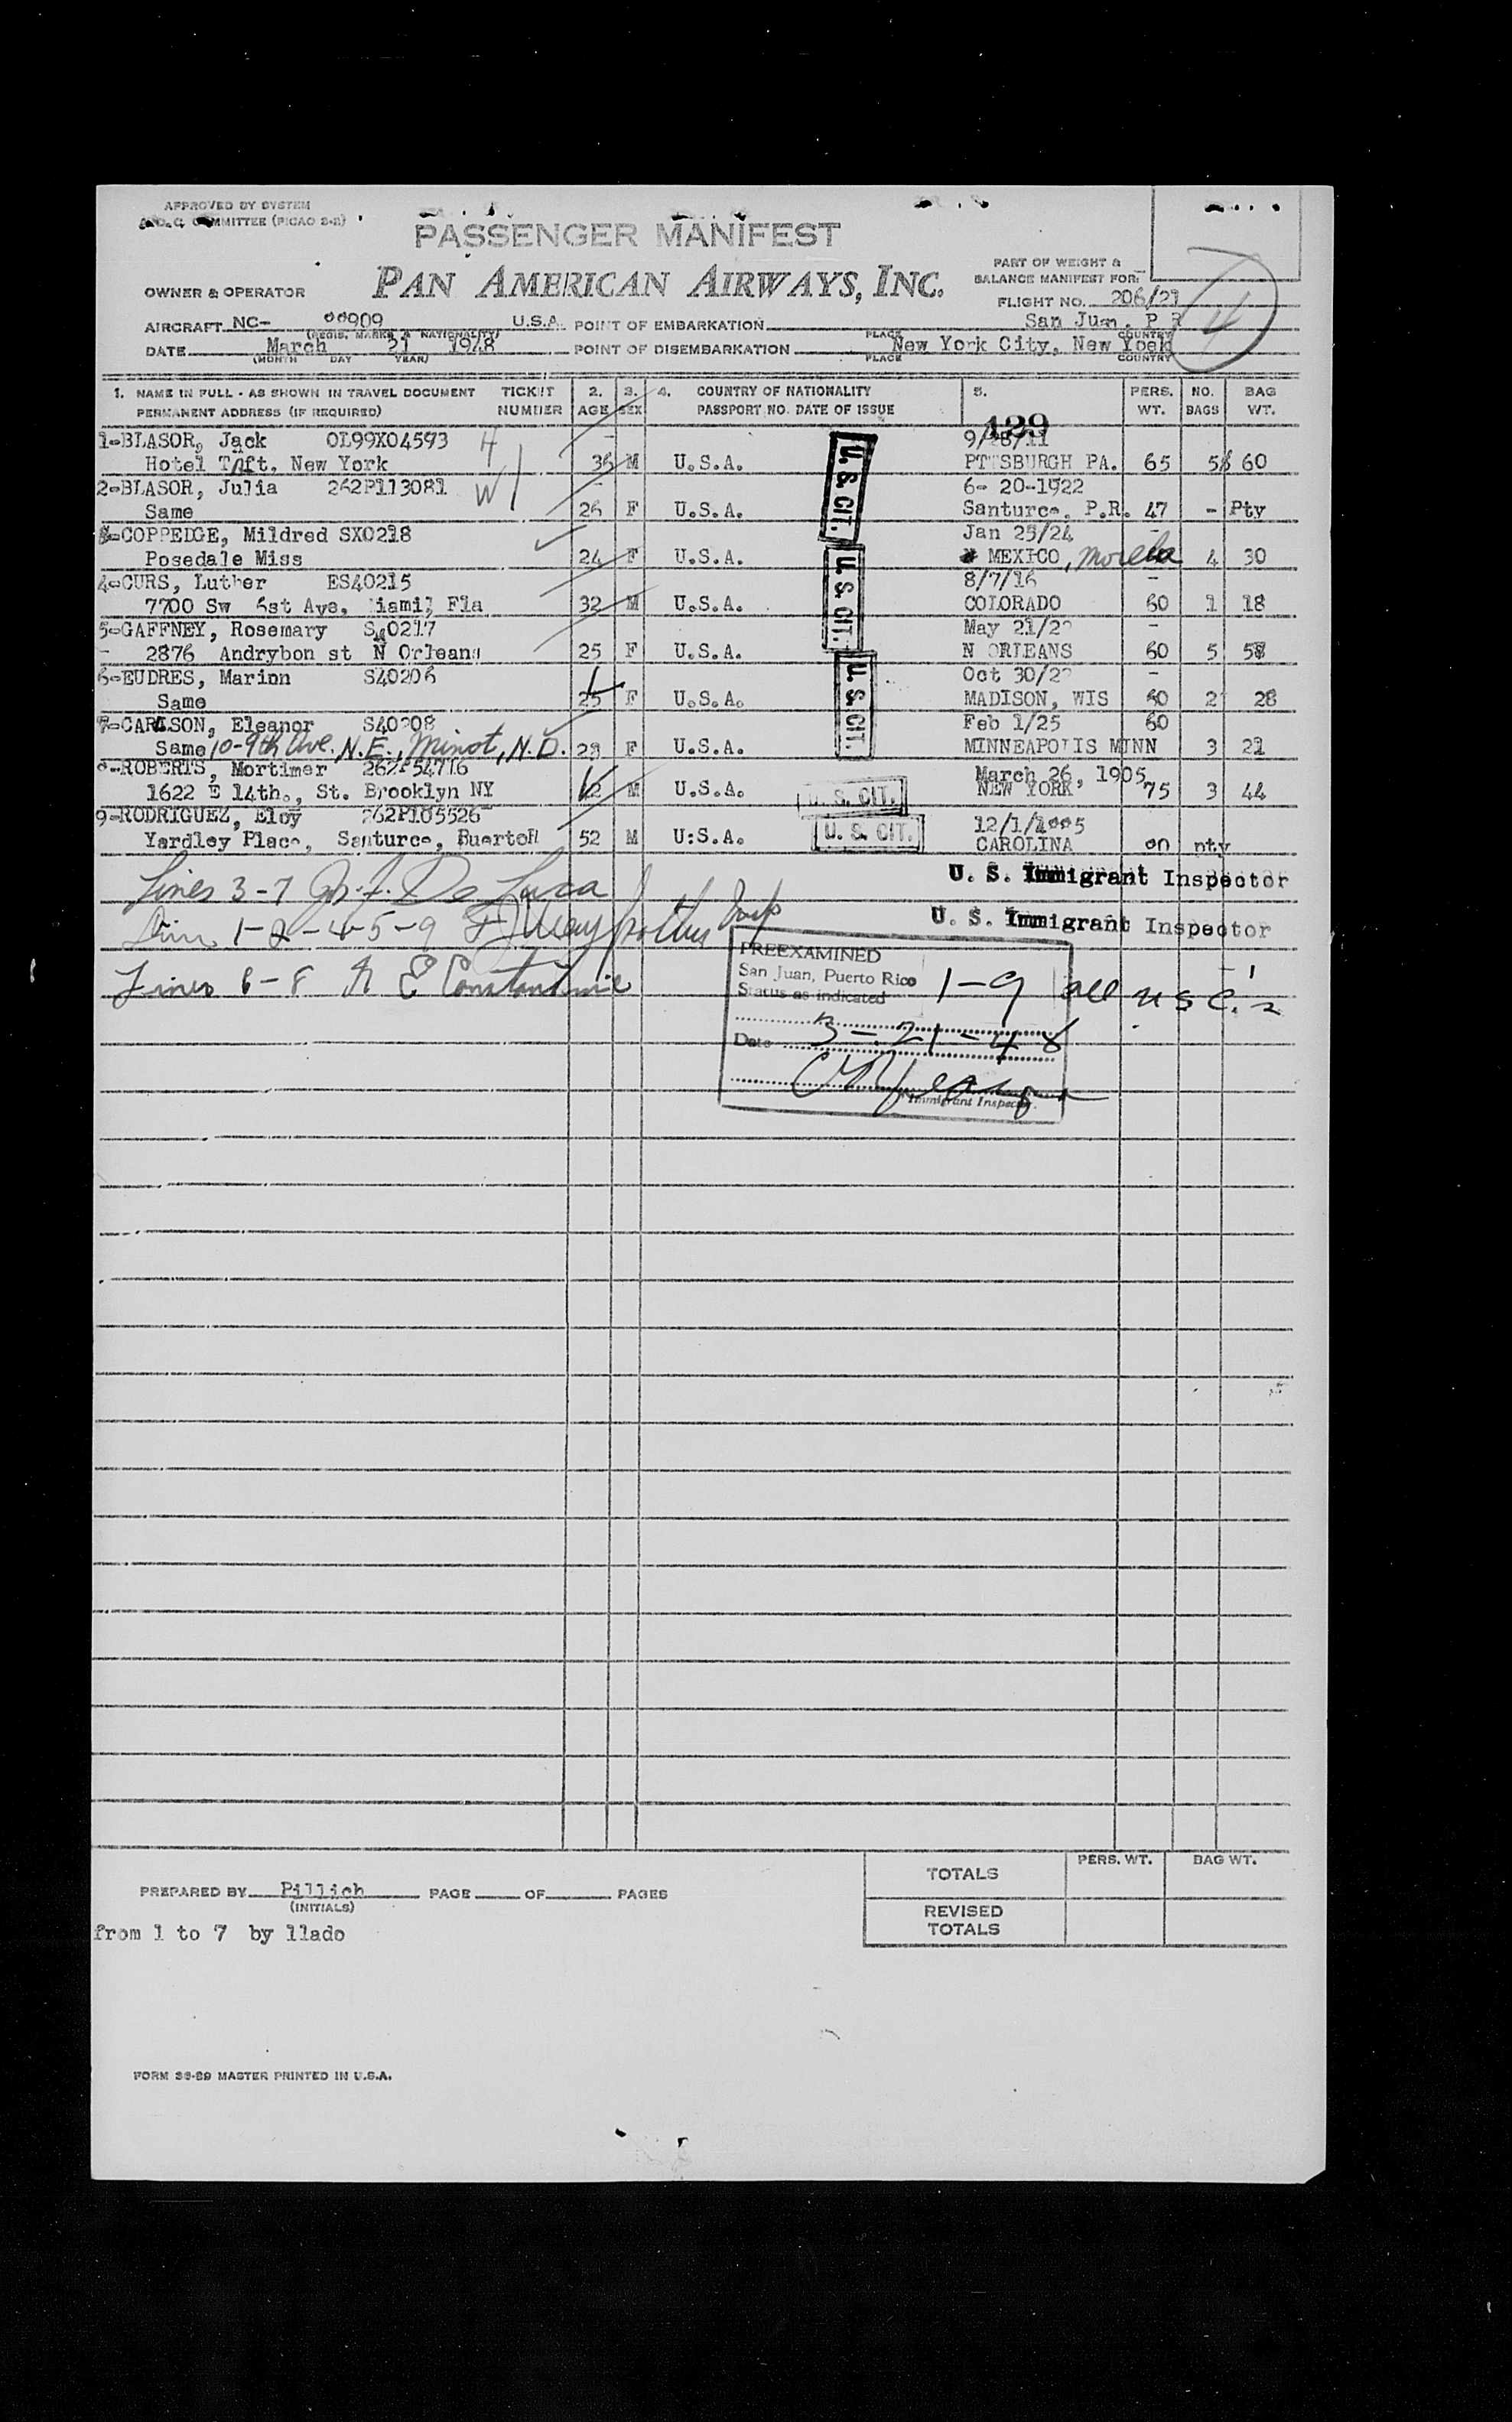 APPROVED BY SYSTEM
A.O.C. COMMITTEE (PICAO 2-2)
PASSENGER MANIFEST
PAN AMERICAN AIRWAYS, INC.
PART OF WEIGHT &
BALANCE MANIFEST FOR:
4
OWNER & OPERATOR
FLIGHT NO. 206/21
AIRCRAFT NC- 00909 U.S.A. POINT OF EMBARKATION San Juan, P R
(REGIS. MARKS & NATIONALITY) PLACE COUNTRY
DATE March 21 1948 POINT OF DISEMBARKATION New York City, New York
(MONTH DAY YEAR) PLACE COUNTRY
1. NAME IN FULL - AS SHOWN IN TRAVEL DOCUMENT TICKET 2. 3. 4. COUNTRY OF NATIONALITY 5. PERS. NO. BAG
PERMANENT ADDRESS (IF REQUIRED) NUMBER AGE SEX PASSPORT NO. DATE OF ISSUE WT. BAGS WT.
129
1-BLASOR, Jack OL99X04593 H 9/28/11
Hotel Taft, New York 36 M U.S.A. U. S. CIT. PTTSBURGH PA. 65 5 60
2-BLASOR, Julia 262P113081 W 6- 20-1922
Same 26 F U.S.A. Santurce, P.R. 47 - Pty
3-COPPEDGE, Mildred SX0218 Jan 25/24
Posedale Miss 24 F U.S.A. U. S. CIT. MEXICO, 4 30
4-CURS, Luther ES40215 8/7/16
7700 Sw 6st Ave, iami, Fla 32 M U.S.A. COLORADO 60 1 18
5-GAFFNEY, Rosemary S 0217 May 21/22
2876 Andrybon st N Orleans 25 F U.S.A. N ORLEANS 60 5 58
6-EUDRES, Marion S40206 Oct 30/22
Same 25 F U.S.A. U. S. CIT. MADISON, WIS 60 2 28
7-CARLSON, Eleanor S40208 Feb 1/25 60
Same 10-9th Ave. N.E., Minot, N.D. 23 F U.S.A. MINNEAPOLIS MINN 3 21
8-ROBERTS, Mortimer 262P54716 March 26, 1905
1622 E 14th., St. Brooklyn NY M U.S.A. U. S. CIT. NEW YORK 75 3 44
9-RODRIGUEZ, Eloy 262P105526 12/1/1895
Yardley Place, Santurce, PuertoR 52 M U:S.A. U. S. CIT. CAROLINA
Lines 3-7 De Luca U. S. Immigrant Inspector
Lines 1-2-4-5-9 U. S. Immigrant Inspector
Lines 6-8 N E Constantine
PREEXAMINED
San Juan, Puerto Rico
Status as indicated 1-9 all U S C.
Date 3-21-48
Immigrant Inspector.
TOTALS PERS. WT. BAG WT.
PREPARED BY Pillich PAGE OF PAGES
(INITIALS)
REVISED
TOTALS
from 1 to 7 by llado
FORM 36-29 MASTER PRINTED IN U.S.A.